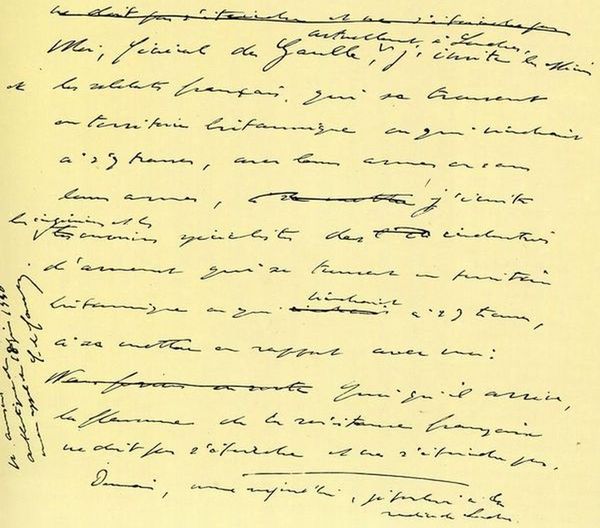 ne doit pas s'éteindre et ne s'éteindra pas
actuellement à Londres,
Moi, Général de Gaulle, j'invite les officiers
et les soldats français, qui se trouvent
en territoire britannique ou qui viendraient
à s'y trouver, avec leurs armes ou sans
leurs armes, j'invite
les ingénieurs et les
ouvriers spécialistes des industries
d'armement qui se trouvent en territoire
britannique ou qui viendraient à s'y trouver,
à se mettre en rapport avec moi.
Quoi qu'il arrive,
la flamme de la résistance française
ne doit pas s'éteindre et ne s'éteindra pas.
Demain, comme aujourd'hui, je parlerai à la
radio de Londres